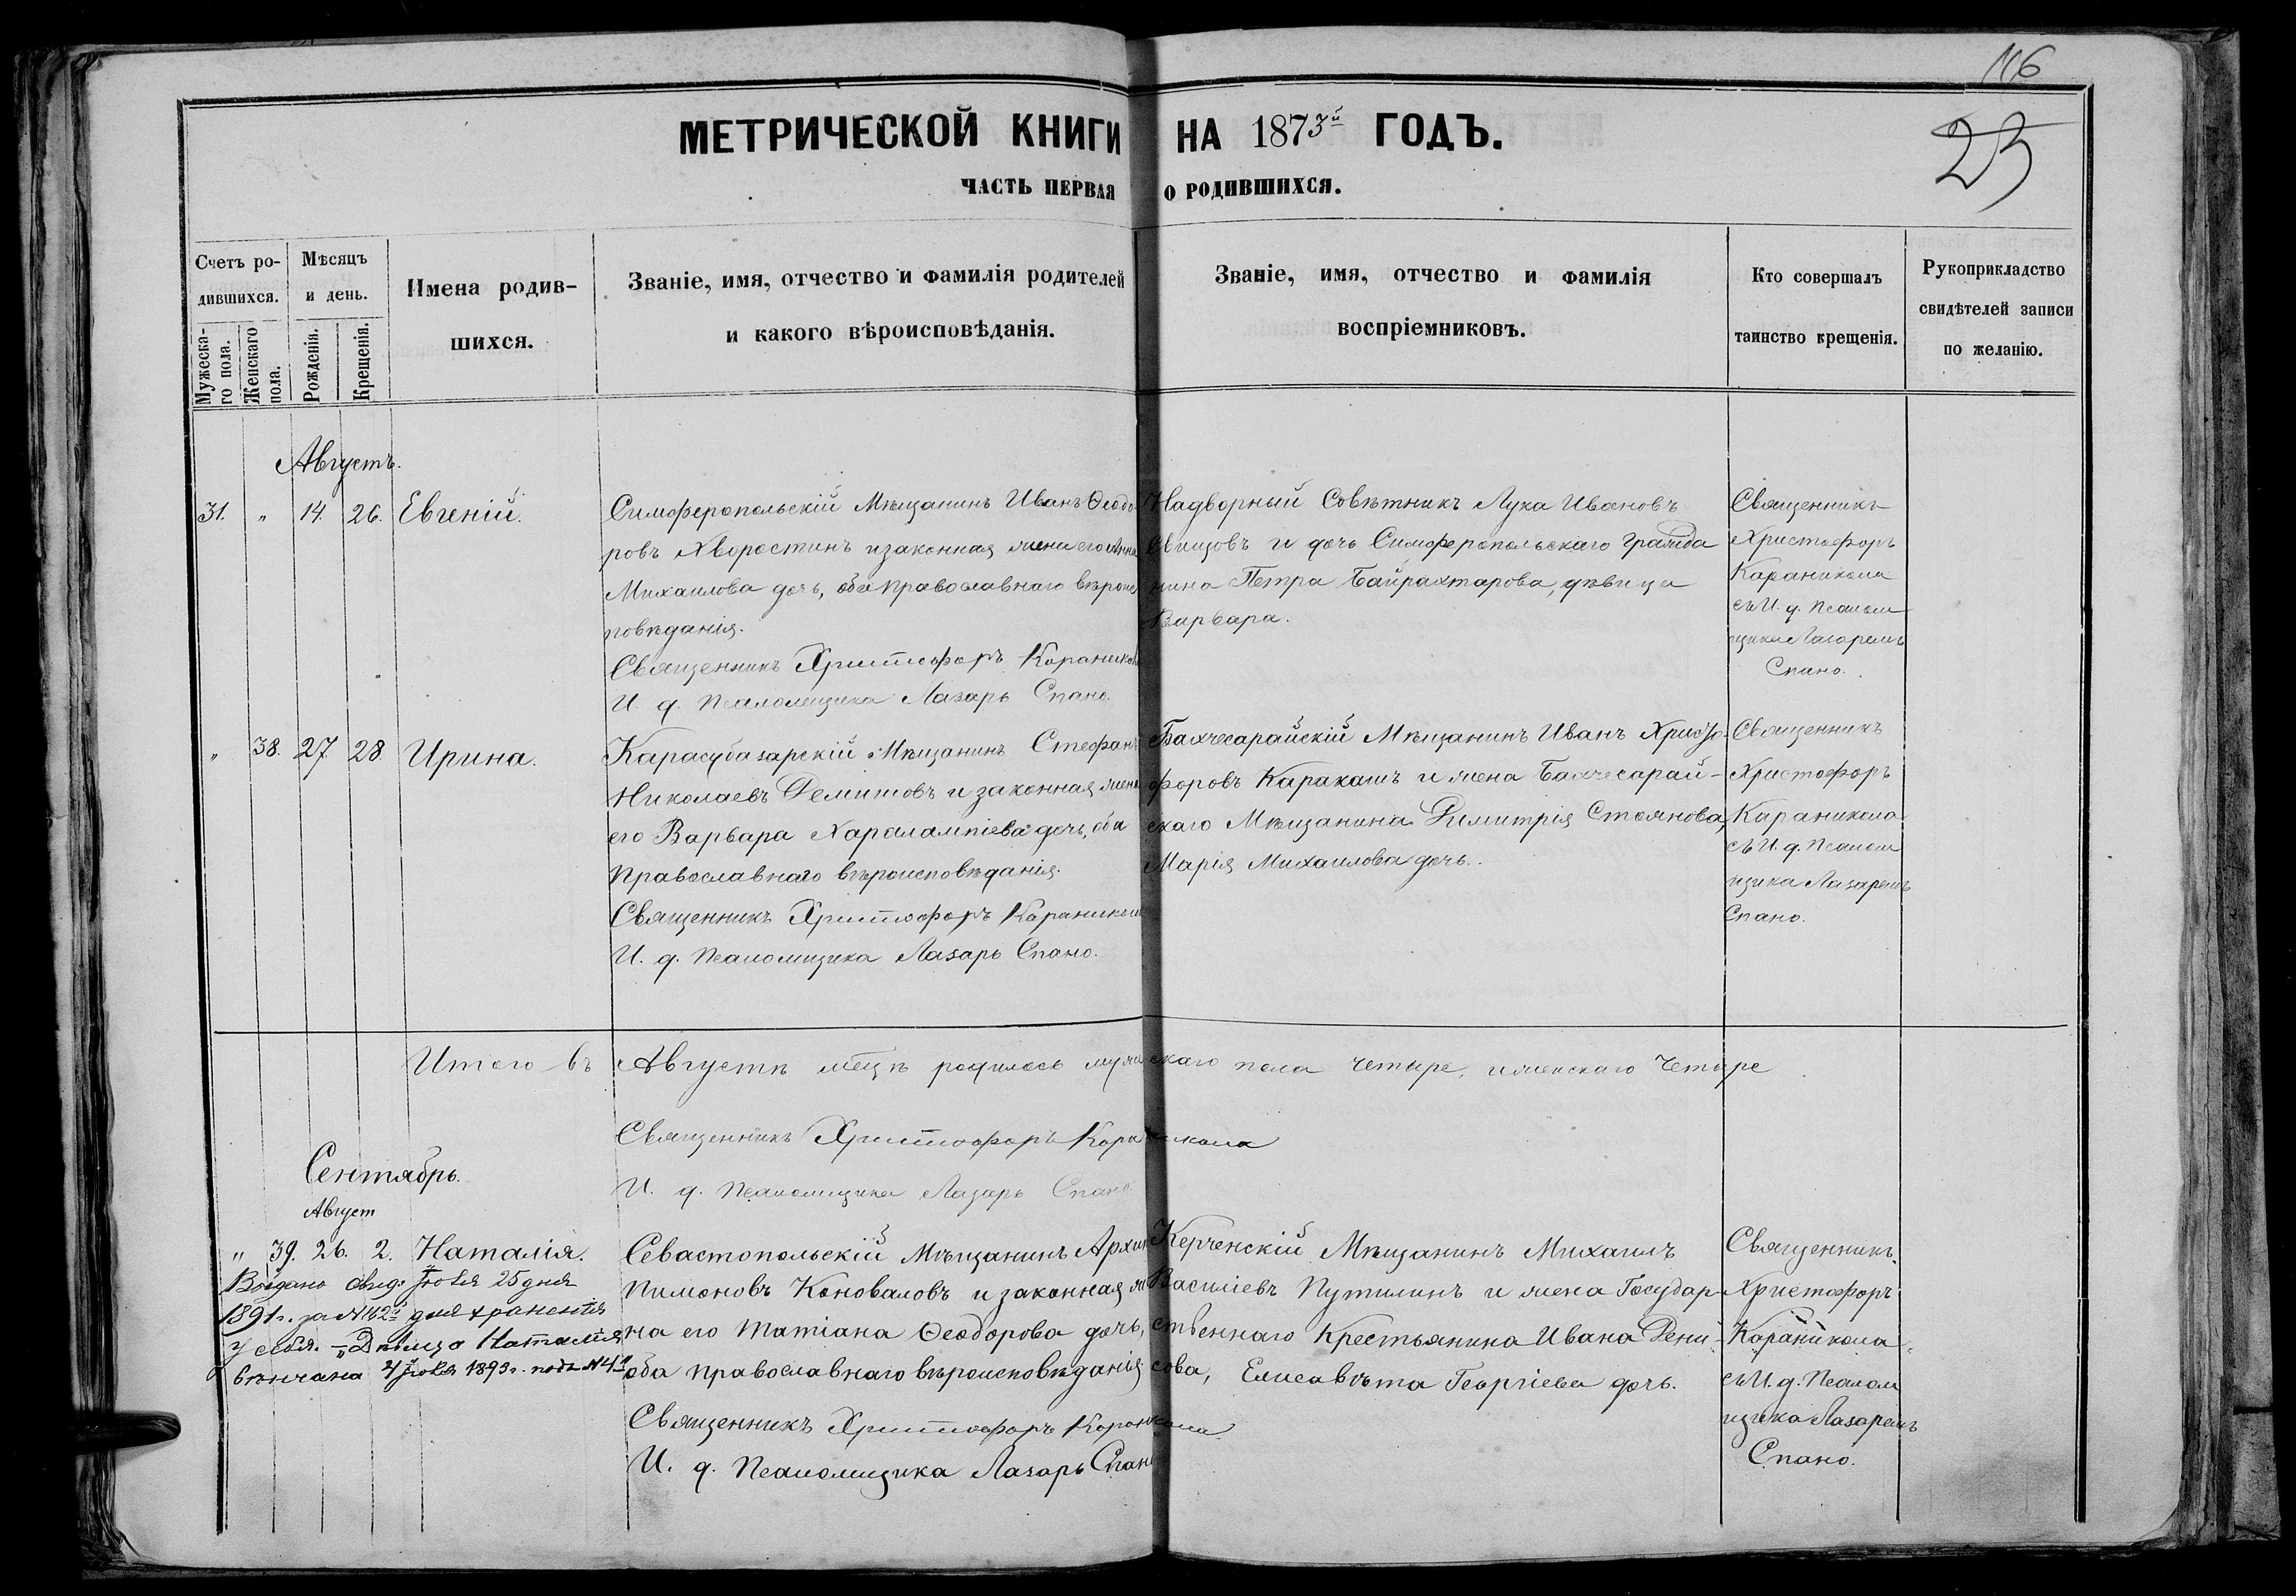 116
МЕТРИЧЕСКОЙ КНИГИ НА 1873й ГОДЪ.
23
ЧАСТЬ ПЕРВАЯ О РОДИВШИХСЯ.
Счетъ ро-
дившихся.
Мужеска-
го пола.
Женскаго
пола.
Мѣсяцъ
и день.
Рожденія.
Крещенія.
Имена родив-
шихся.
Званіе, имя, отчество и фамилія родителей
и какого вѣроисповѣданія.
Званіе, имя, отчество и фамилія
воспріемниковъ.
Кто совершалъ
таинство крещенія.
Рукоприкладство
свидѣтелей записи
по желанію.
Августъ.
31. " 14. 26. Евгеній.
Симферопольскій Мѣщанинъ Иванъ Ѳеодо-
ровъ Хворостинъ и законная жена его Анна
Михаилова дочь, оба православнаго вѣроис
повѣданія.
Священникъ Христофоръ Караникола
И. д. Псаломщика Лазарь Спано.
Надворный Совѣтникъ Лука Ивановъ
Свищовъ и дочь Симферопольскаго гражда
нина Петра Байрахтарова, дѣвица
Варвара.
Священникъ
Христофоръ
Караникола
съ И. д. Псалом
щика Лазаремъ
Спано.
" 38. 27. 28 Ирина.
Карасубазарскій Мѣщанинъ Стефанъ
Николаевъ Демитовъ и законная жена
его Варвара Харалампіева дочь, оба
православнаго вѣроисповѣданія.
Священникъ Христофоръ Караникола
И. д. Псаломщика Лазарь Спано.
Бахчесарайскій Мѣщанинъ Иванъ Христо-
форовъ Каракашъ и жена Бахчесарай-
скаго Мѣщанина Димитрія Стоянова,
Марія Михаилова дочь.
Священникъ
Христофоръ
Караникола
съ И. д. Псалом
щика Лазаремъ
Спано.
Итого въ Августѣ мѣцѣ родилось мужескаго пола четыре, и женскаго четыре
Священникъ Христофоръ Караникола
И. д. Псаломщика Лазарь Спано
Сентябрь.
Август
" 39. 26. 2. Наталія.
Выдано свид. Іюля 25 дня
1891 г. за № 112й для храненія
у себя. – "Дѣвица Наталія
вѣнчана 4 Іюля 1893 г. подъ № 4
Севастопольскій Мѣщанинъ Архип
Пимоновъ Коноваловъ и законная же
на его Татіана Ѳеодорова дочь,
оба православнаго вѣроисповѣданія
Священникъ Христофоръ Караникола
И. д. Псаломщика Лазарь Спано
Керченскій Мѣщанинъ Михаилъ
Василіевъ Путилинъ и жена Государ-
ственнаго Крестьянина Ивана Дени-
сова, Елисавѣта Георгіева дочь.
Священникъ
Христофоръ
Караникола
съ И. д. Псалом
щика Лазаремъ
Спано.